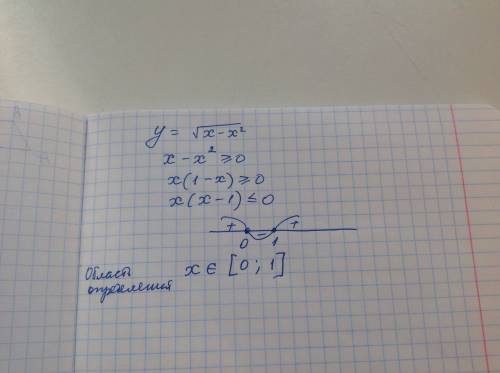 y = √x-x²
x - x² ≥ 0
x(1-x) ≥ 0
x(x-1) ≤ 0
+ - +
0 1
Область
определения
x ∈ [0; 1]